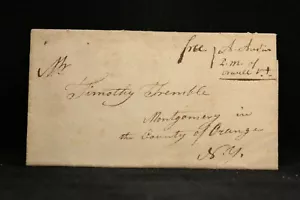 free
P.M. of
Mr
Timothy Tremble
Montgomery in
the County of Orange
N.Y.